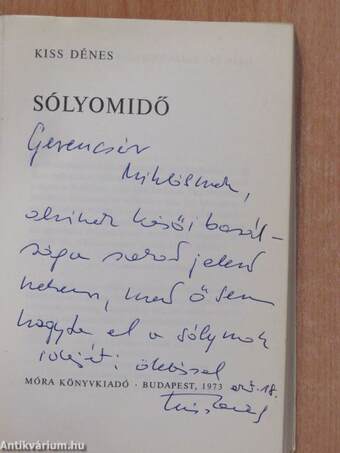 KISS DÉNES
SÓLYOMIDŐ
Gerencsér
Miklósnak,
akinek késői barát-
sága sokat jelent
nekem, mert ő sem
hagyta el a sólymok
idejét: öleléssel
MÓRA KÖNYVKIADÓ · BUDAPEST, 1973
Kiss Dénes
Antikvárium.hu